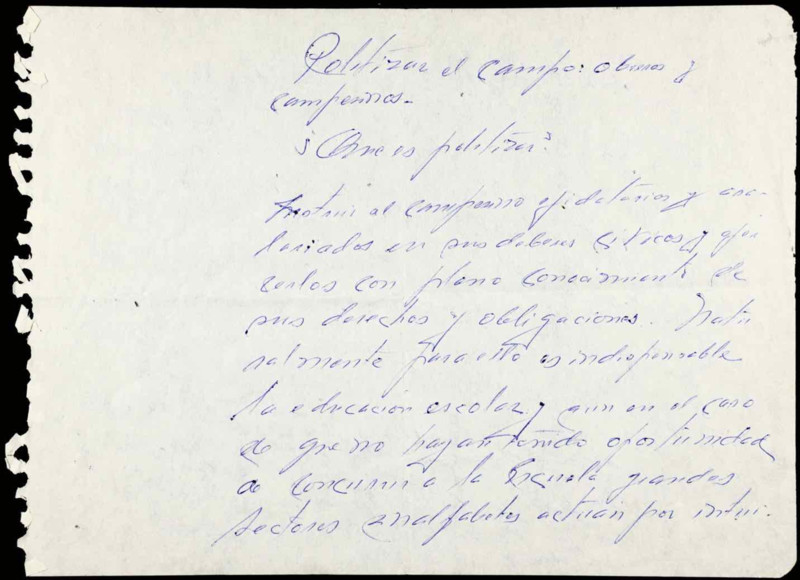 Politizar el campo: obreros y
campesinos.
¿Que es politizar?
Instruir al campesino ejidatarios y asa-
lariados en sus deberes civicos y ejer
cerlos con pleno conocimiento de
sus derechos y obligaciones. Natu
ralmente para esto es indispensable
la educación escolar y aun en el caso
de que no hayan tenido oportunidad
de concurrir a la Escuela grandes
sectores analfabetos actúan por intui-